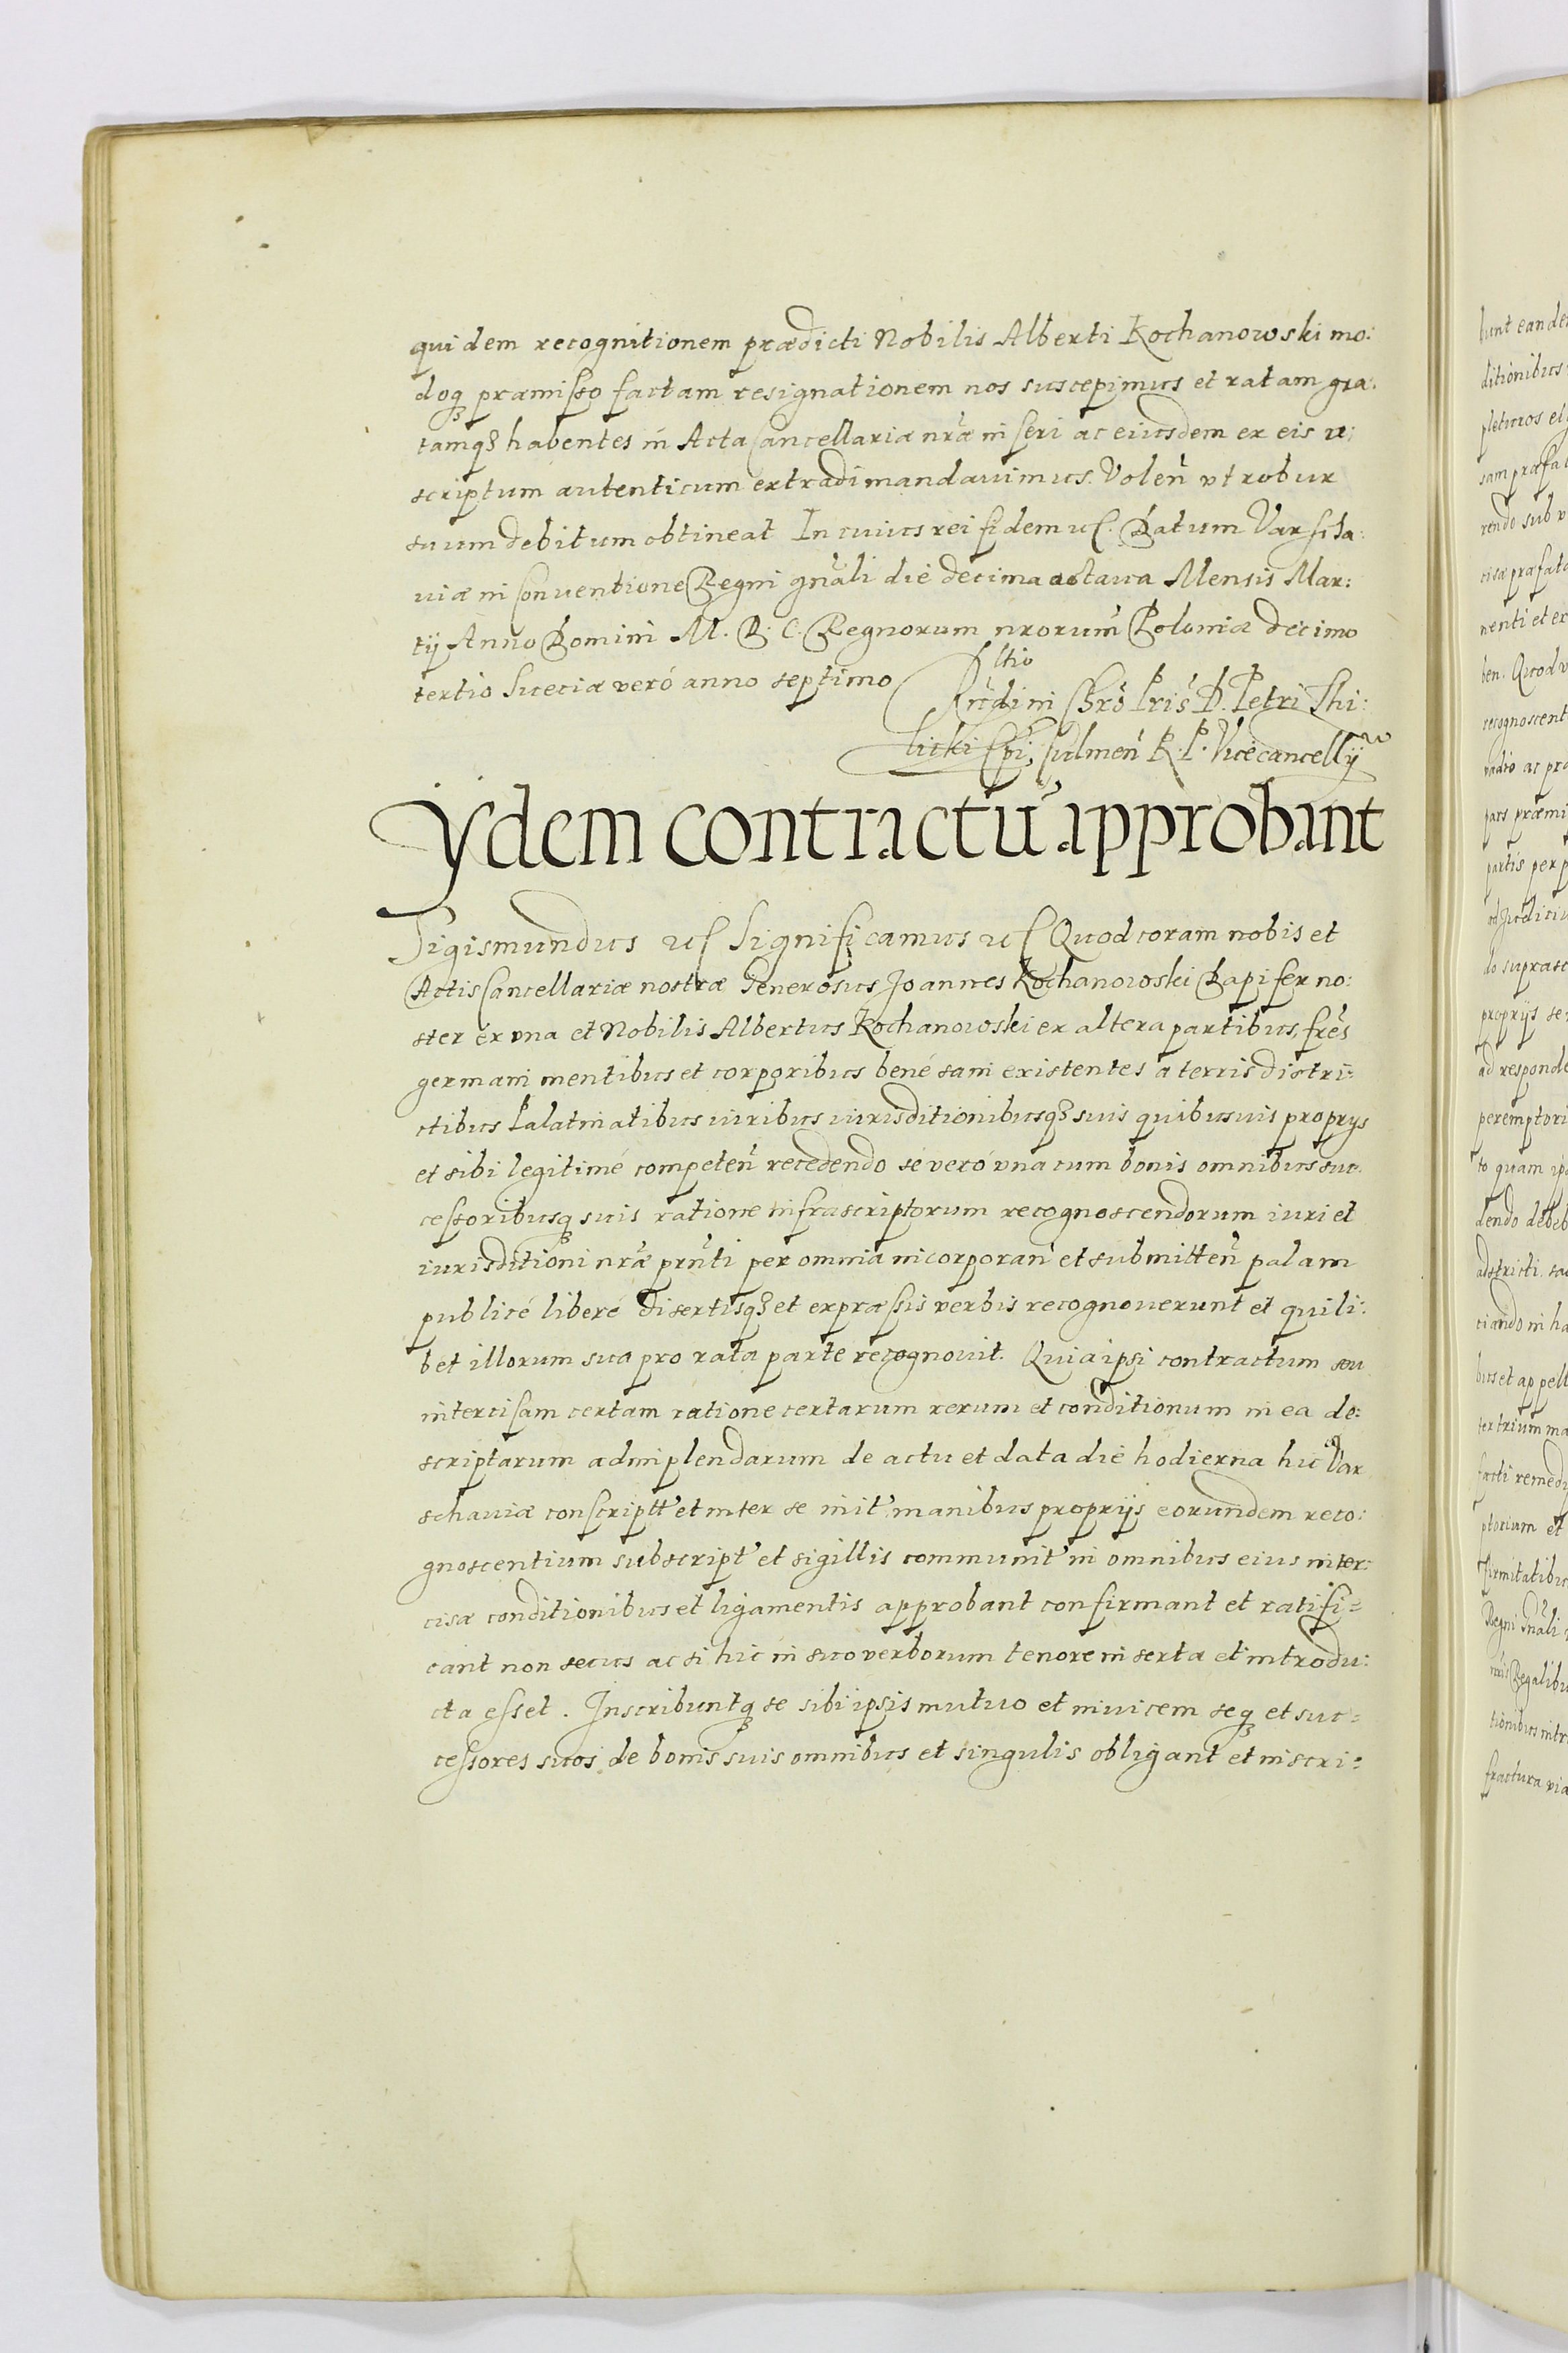 quidem recognitionem prædicti Nobilis Alberti Kochanowski mo:
doq præmisso factam resignationem nos suscepimus et ratam gra:
tamq habentes in Acta Cancellariæ nræ inseri ac eiusdem ex eis re:
scriptum autenticum extradi mandauimus. Volen vt robur
suum debitum obtineat In cuius rei fidem Datum Varscha:
uiæ in Conuentione Regni gnali die decima octaua Mensis Mar:
tij Anno Domini M. D. C. Regnorum nrorum Poloniæ decimo
tertio Sueciæ veró anno septimo
Rndi in Chro Pris D. Petri Thi:
licki Epi, Culmen R. P. Vicecancellij
Ydem contractū approbant
Sigismundus Significamus Quod coram nobis et
Actis Cancellariæ nostræ Generosus Joannes Kochanowski Dapifer no:
ster ex vna et Nobilis Albertus Kochanowski ex altera partibus, fres
germani mentibus et corporibus bené sani existentes a terris distri:
ctibus Palatinatibus iuribus iurisditionibusq suis quibusuis proprys
et sibi legitimé competen recedendo se veró vna cum bonis omnibus suc:
cessoribusq suis ratione infrascriptorum recognoscendorum iuri et
iurisditioni nræ prnti per omnia incorporan et submitten palam
publicé liberé disertisq et expræssis verbis recognouerunt et quili:
bet illorum sua pro rata parte recognouit. Quia ipsi contractum seu
intercisam certam ratione certarum rerum et conditionum in ea de:
scriptarum adimplendarum de actu et data die hodierna hic Var
schauiæ conscriptt et inter se init manibus proprijs eorundem reco:
gnoscentium subscript et sigillis communit in omnibus eius inter:
cisæ conditionibus et ligamentis approbant confirmant et ratifi=
cant non secus ac si hic in suo verborum tenore inserta et introdu:
cta esset. Inscribuntq se sibi ipsis mutuo et inuicem seq et suc=
cessores suos de bonis suis omnibus et singulis obligant et inscri=